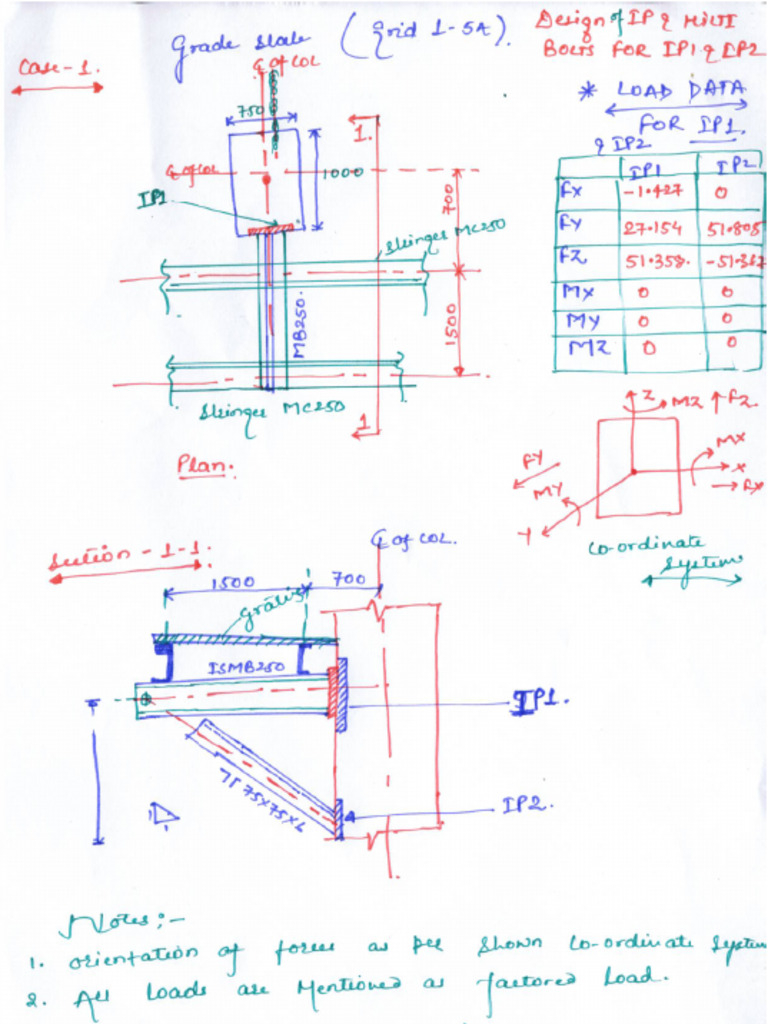 Grade slab (Grid 1-5A).
Design of IP & HILTI
BOLTS FOR IP1 & IP2
Case-1.
℄ OF COL
* LOAD DATA
FOR IP1.
& IP2
750
1.
℄ OF COL
1000
IP1
700
Stringer MC250
MB250.
1500
Stringer MC250
1
Plan.
IP1 IP2
FX -1.427 0
FY 27.154 51.805
FZ 51.358. -51.362
MX 0 0
MY 0 0
MZ 0 0
Z MZ FZ.
MX
X
FX
FY
MY
Y
Co-ordinate
System
Section - 1-1.
℄ OF COL.
1500 700
ISMB250
IP1.
75X75X6
IP2.
1
1
Notes;-
1. Orientation of forces as per shown Co-ordinate System
2. All Loads are Mentioned as factored Load.